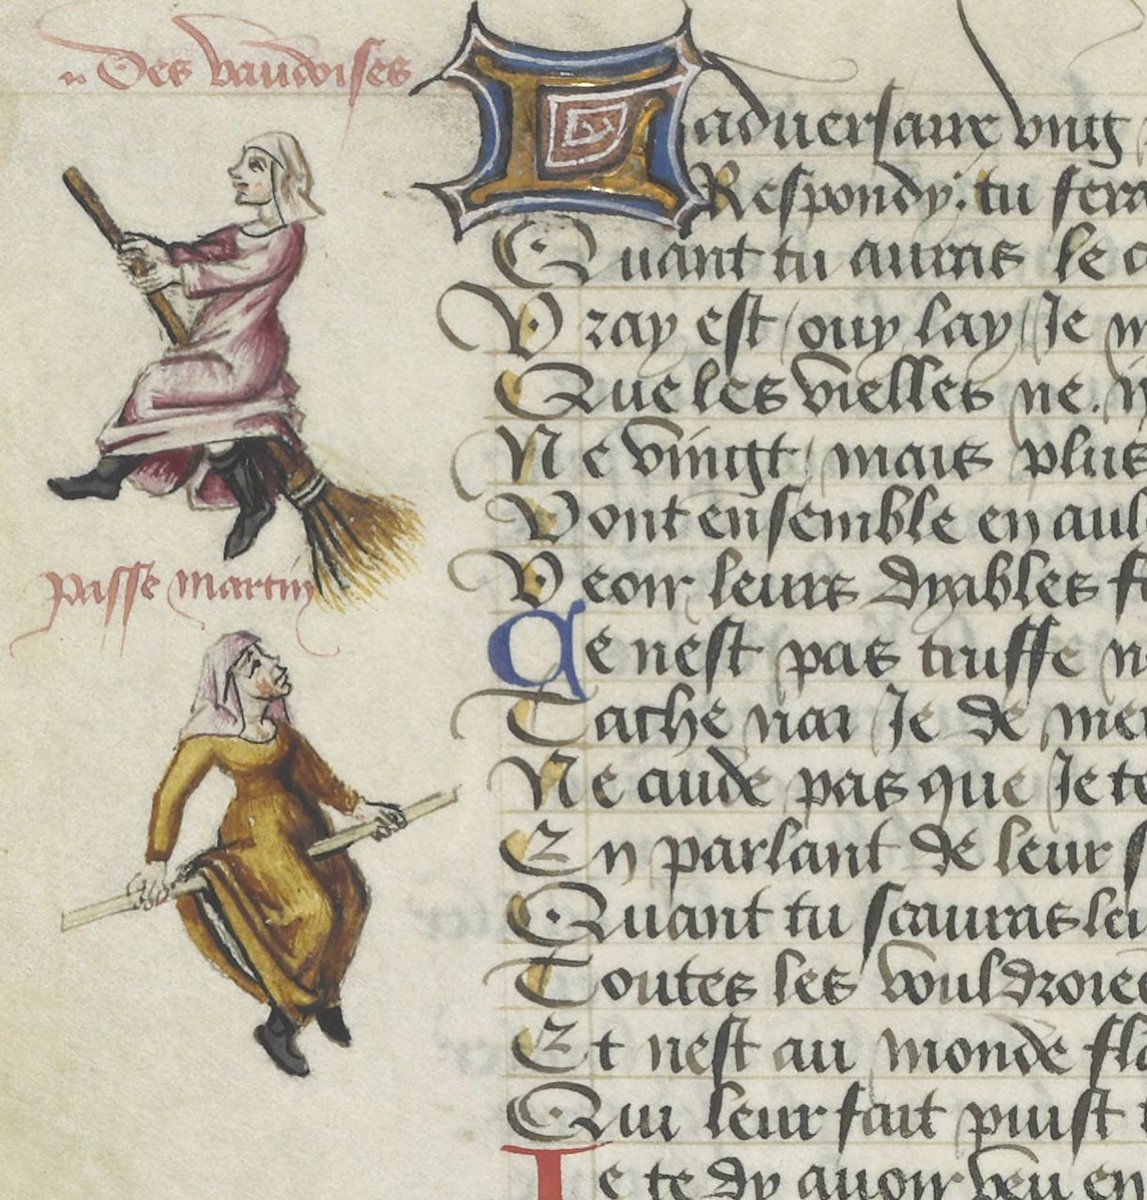 Des vaudoises
passe martin
Ladversaire ung
Respondy: tu
Quant tu auras le
Vray est ouy lay Je
Que les vielles ne.
Ne vingt mais plus
Vont ensemble en
Veoir leurs dyables
Ce nest pas truffe
Tache
Ne cude pas que Je
En parlant de leur
Quant tu scauras
Toutes les vouldroie
Et nest au monde
Qui leur fait
Je te dy avoir veu en